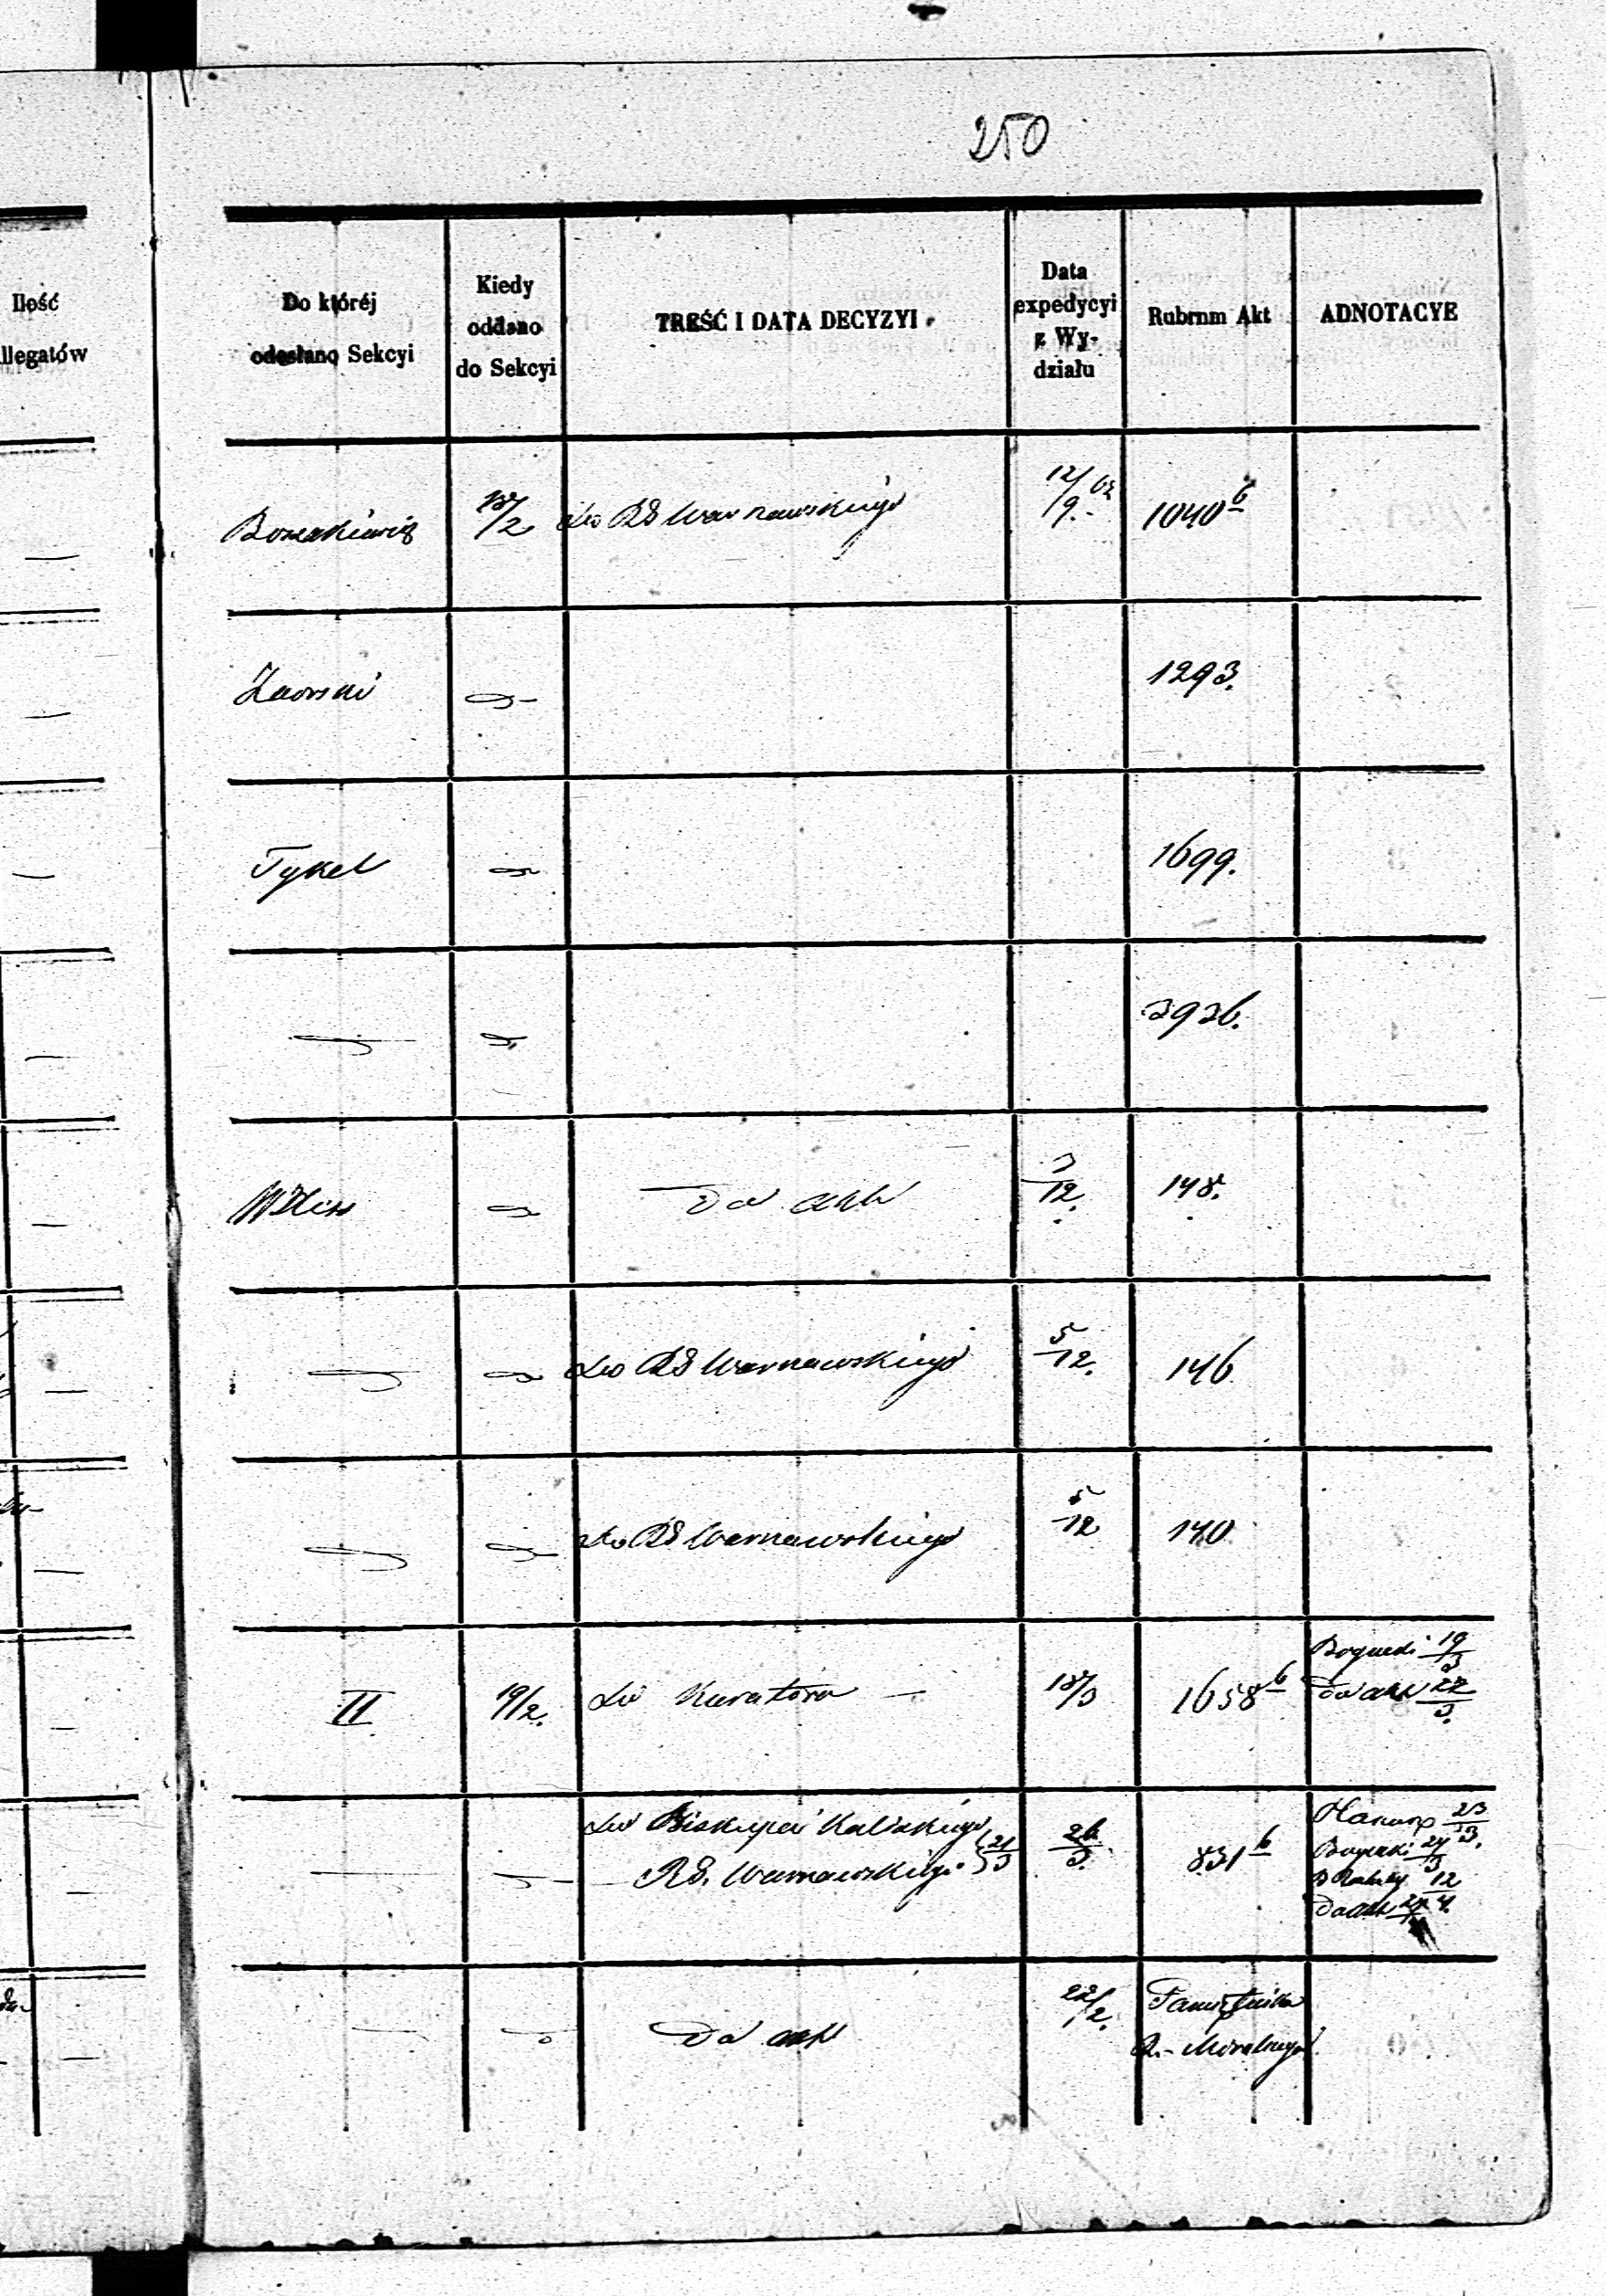 250
Ilość
llegatów
Do któréj
odesłano Sekcyi
Kiedy
oddano
do Sekcyi
TREŚĆ I DATA DECYZYI
Data
expedycyi
z Wy-
działu
Rubrum Akt
ADNOTACYE
18/2 do RG Warszawskiego 12/9 62 1040 b
Zaorski 1293.
Tykel 1699.
2926.
Do akt 3/12. 148.
do RG Warszawskiego 5/12. 146
do RG Warszawskiego 5/12 140
II 19/2. do Kuratora — 18/3 1658 b
Bogucki 19/3
Do akt 22/3.
do Biskupa Kaliskiego
RG. Warszawskiego 21/3 26/3. 831 b
23/3.
Bogucki 24/3
12/4.
Do akt
Do akt 22/2.
Moralnego